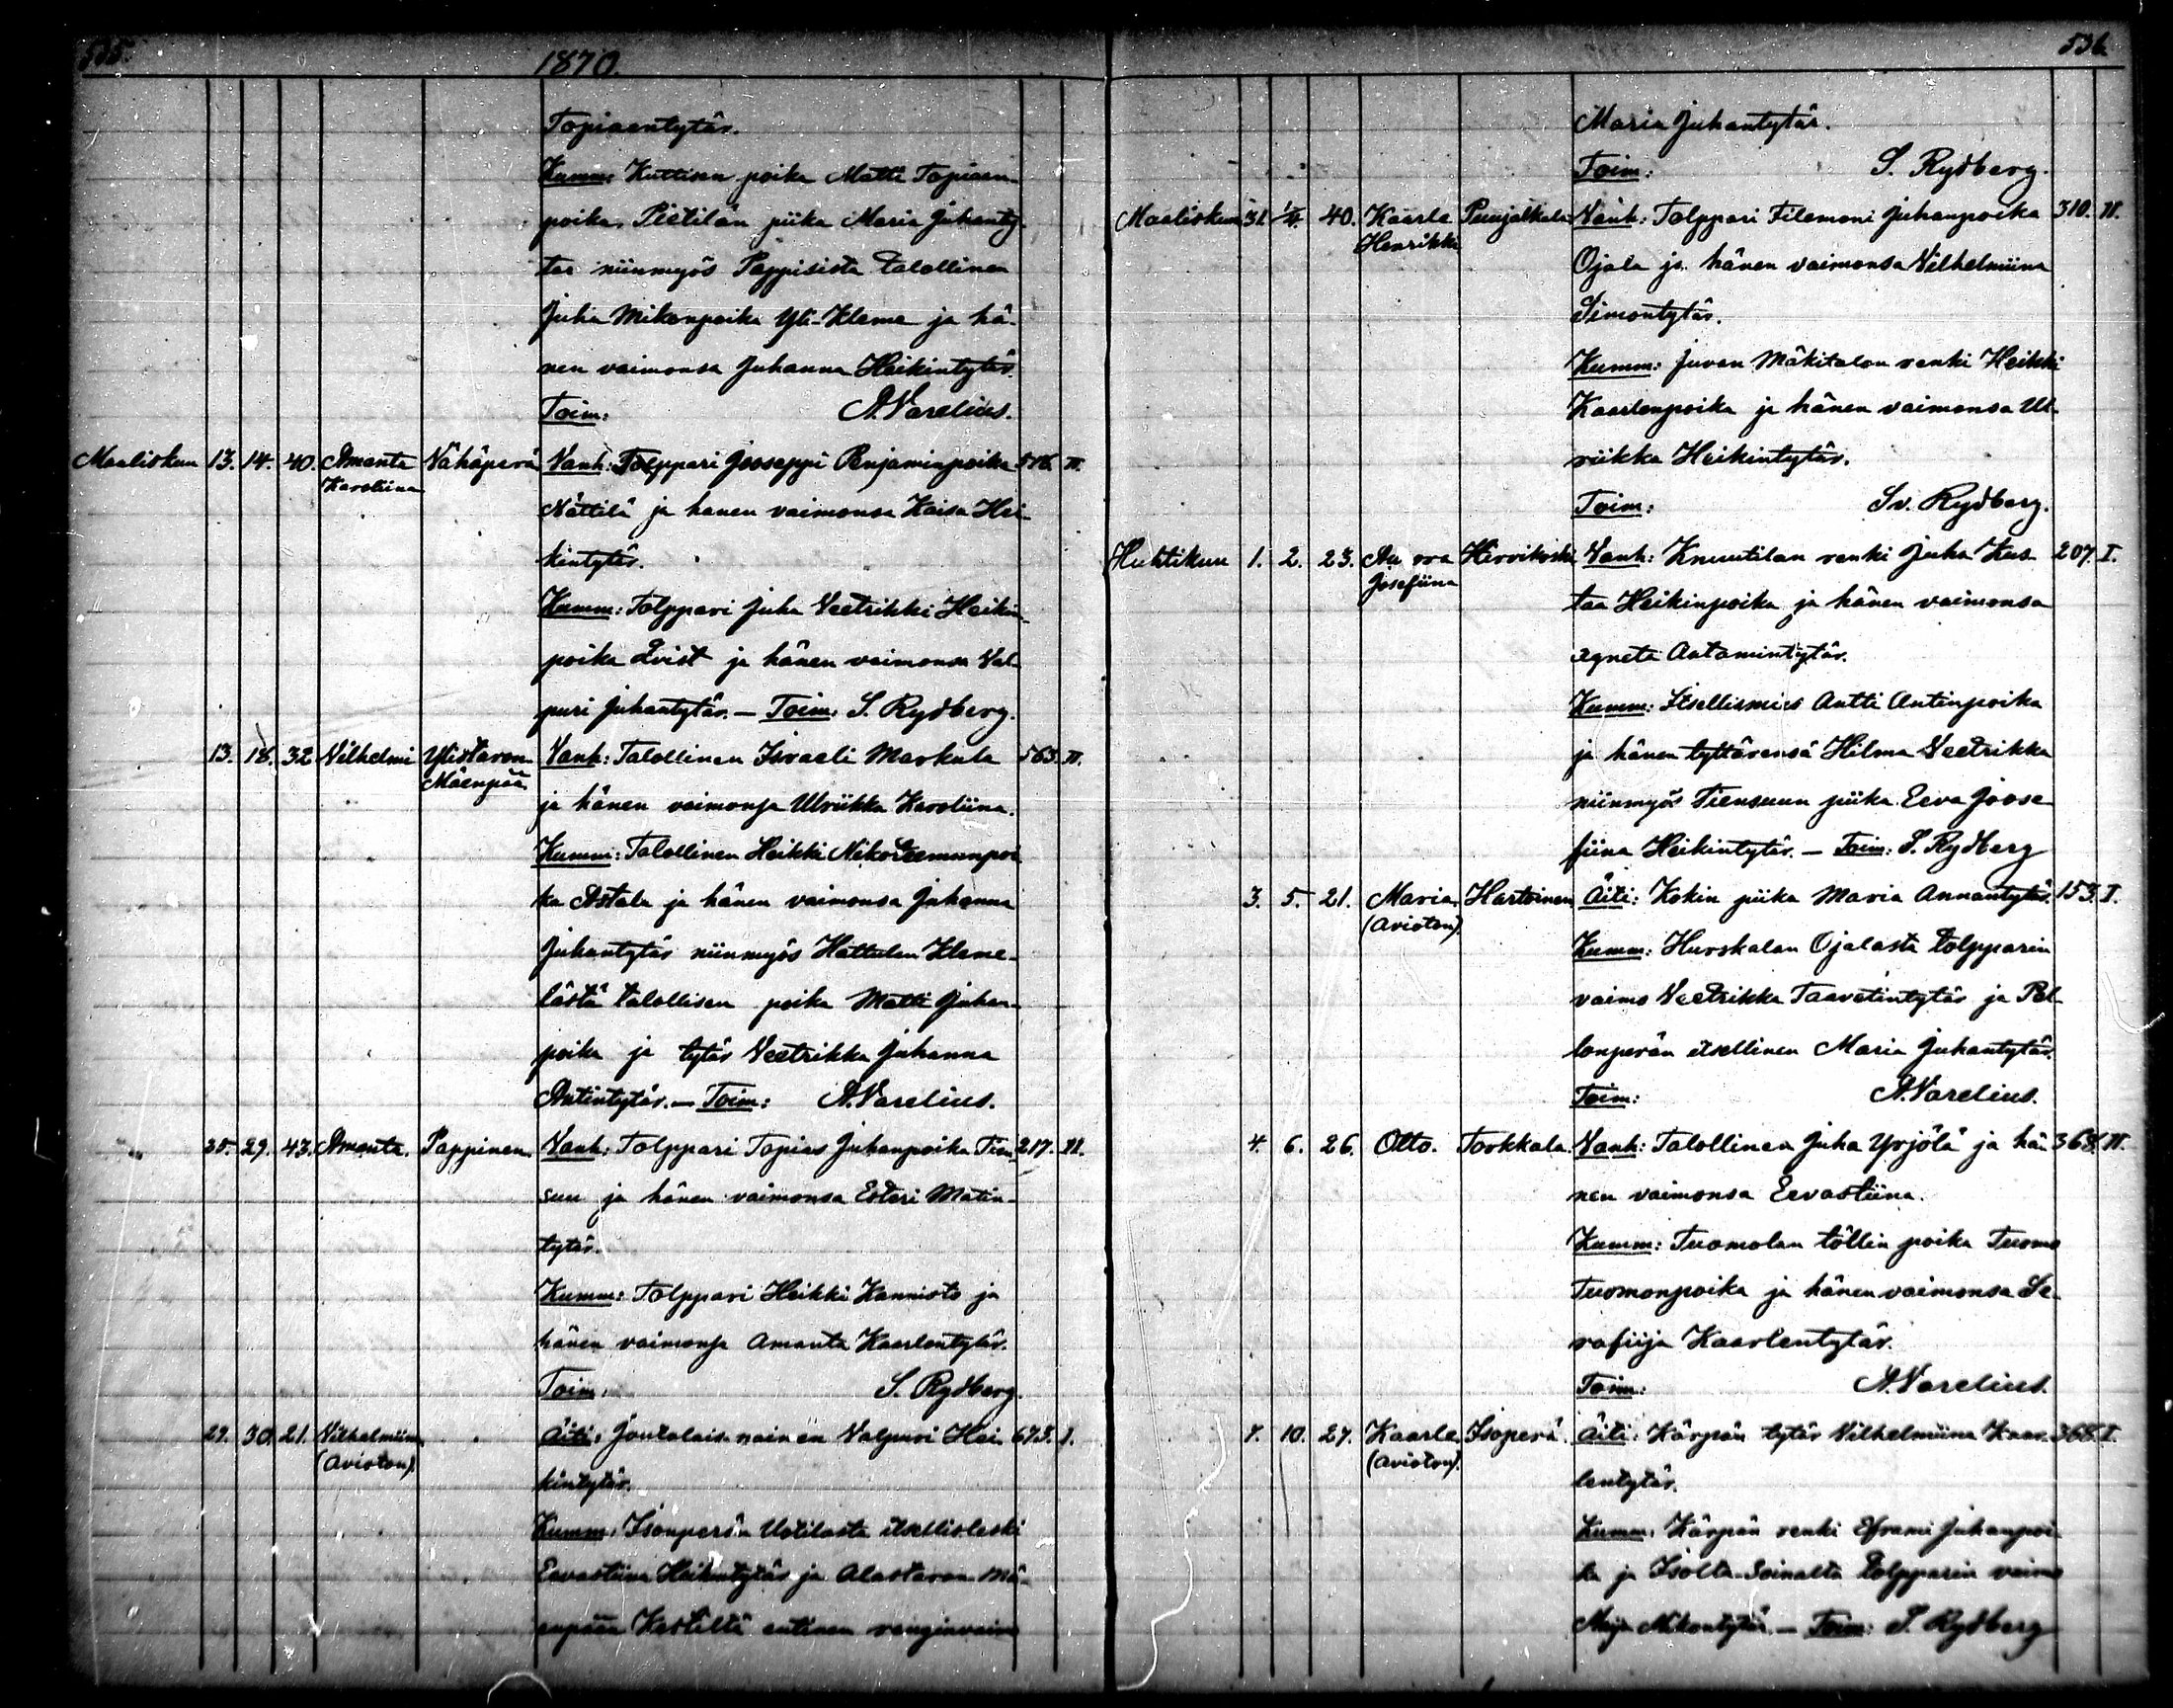 535.
1870.
Topiaentytär.
Kumm: Kuttisen poika Matti Topiaan-
poika, Pietilän piika Maria Juhanty-
tär niinmyös Pappisista talollinen
Juha Mikonpoika Yli-Kleme ja hä-
nen vaimonsa Juhanna Heikintytär.
Toim: A. Varelius.
Maaliskuu 13. 14. 40. Amanta Vähäperä Vanh: Tolppari Jooseppi Penjaminpoika 518. II.
Karoliina
Nättilä ja hänen vaimonsa Kaisa Hei-
kintytär.
Kumm: Tolppari Juha Veetrikki Heikin-
poika Qvist ja hänen vaimonsa Val-
puri Juhantytär. — Toim: S. Rydberg.
13. 18. 32 Vilhelmi Ylistaron Vanh: Talollinen Israeli Markula 563. II.
Mäenpää
ja hänen vaimonsa Ulriikka Karoliina.
Kumm: Talollinen Heikki Nikoteemunpoi-
ka Astala ja hänen vaimonsa Juhanna
Juhantytär niinmyös Hattulan Kleme-
lästä talollisen poika Matti Juhan-
poika ja tytär Veetrikka Juhanna
Antintytär. — Toim: A. Varelius.
25. 29. 43. Amanta. Pappinen. Vanh: Tolppari Topias Juhanpoika Tien- 217. II.
suu ja hänen vaimonsa Esteri Matin-
tytär.
Kumm: Tolppari Heikki Kannisto ja
hänen vaimonsa Amanta Kaarlentytär.
Toim: S. Rydberg.
29. 30. 21. Vilhelmiina Äiti: Joutolais-nainen Valpuri Hei- 673. I.
(Avioton).
kintytär.
Kumm: Isonperän Uotilasta itsellisleski
Eevastiina Heikintytär ja Alastaron Mä-
enpään Kestiltä entinen renginvaimo
536.
Maria Juhantytär.
Toim: S. Rydberg.
Maaliskuu 31. 1/4. 40. Kaarle Puujalkala Vanh: Tolppari Filemoni Juhanpoika 310. II.
Henrikki
Ojala ja hänen vaimonsa Vilhelmiina
Simontytär.
Kumm: Juvan Mäkitalon renki Heikki
Kaarlenpoika ja hänen vaimonsa Ul-
riikka Heikintytär.
Toim: Sv. Rydberg.
Huhtikuu 1. 2. 23. Aurora Hirvikoski Vanh: Knuutilan renki Juha Kus- 207. I.
Josefiina
taa Heikinpoika ja hänen vaimonsa
Agneta Aatamintytär.
Kumm: Itsellismies Antti Antinpoika
ja hänen tyttärensä Hilma Veetrikka
niinmyös Tiensuun piika Eeva Joose-
fiina Heikintytär. — Toim: S. Rydberg
3. 5. 21. Maria Hartoinen. Äiti: Kokin piika Maria Annantytär. 153. I.
(Avioton).
Kumm: Hurskalan Ojalasta tolpparin
vaimo Veetrikka Taavetintytär ja Pel-
lonperän itsellinen Maria Juhantytär.
Toim: A. Varelius.
4. 6. 26. Otto. Torkkala. Vanh: Talollinen Juha Yrjölä ja hä- 368. II.
nen vaimonsa Eevastiina.
Kumm: Tuomolan töllin poika Tuomo
Tuomonpoika ja hänen vaimonsa Se-
rafiija Kaarlentytär.
Toim: A. Varelius.
7. 10. 27. Kaarle Isoperä. Äiti: Kärpän tytär Vilhelmiina Kaar- 368. I.
(Avioton).
lentytär.
Kumm: Kärpän renki Eframi Juhanpoi-
ka ja Isolta-Soinalta tolpparin vaimo
Maija Mikontytär. — Toim: S. Rydberg